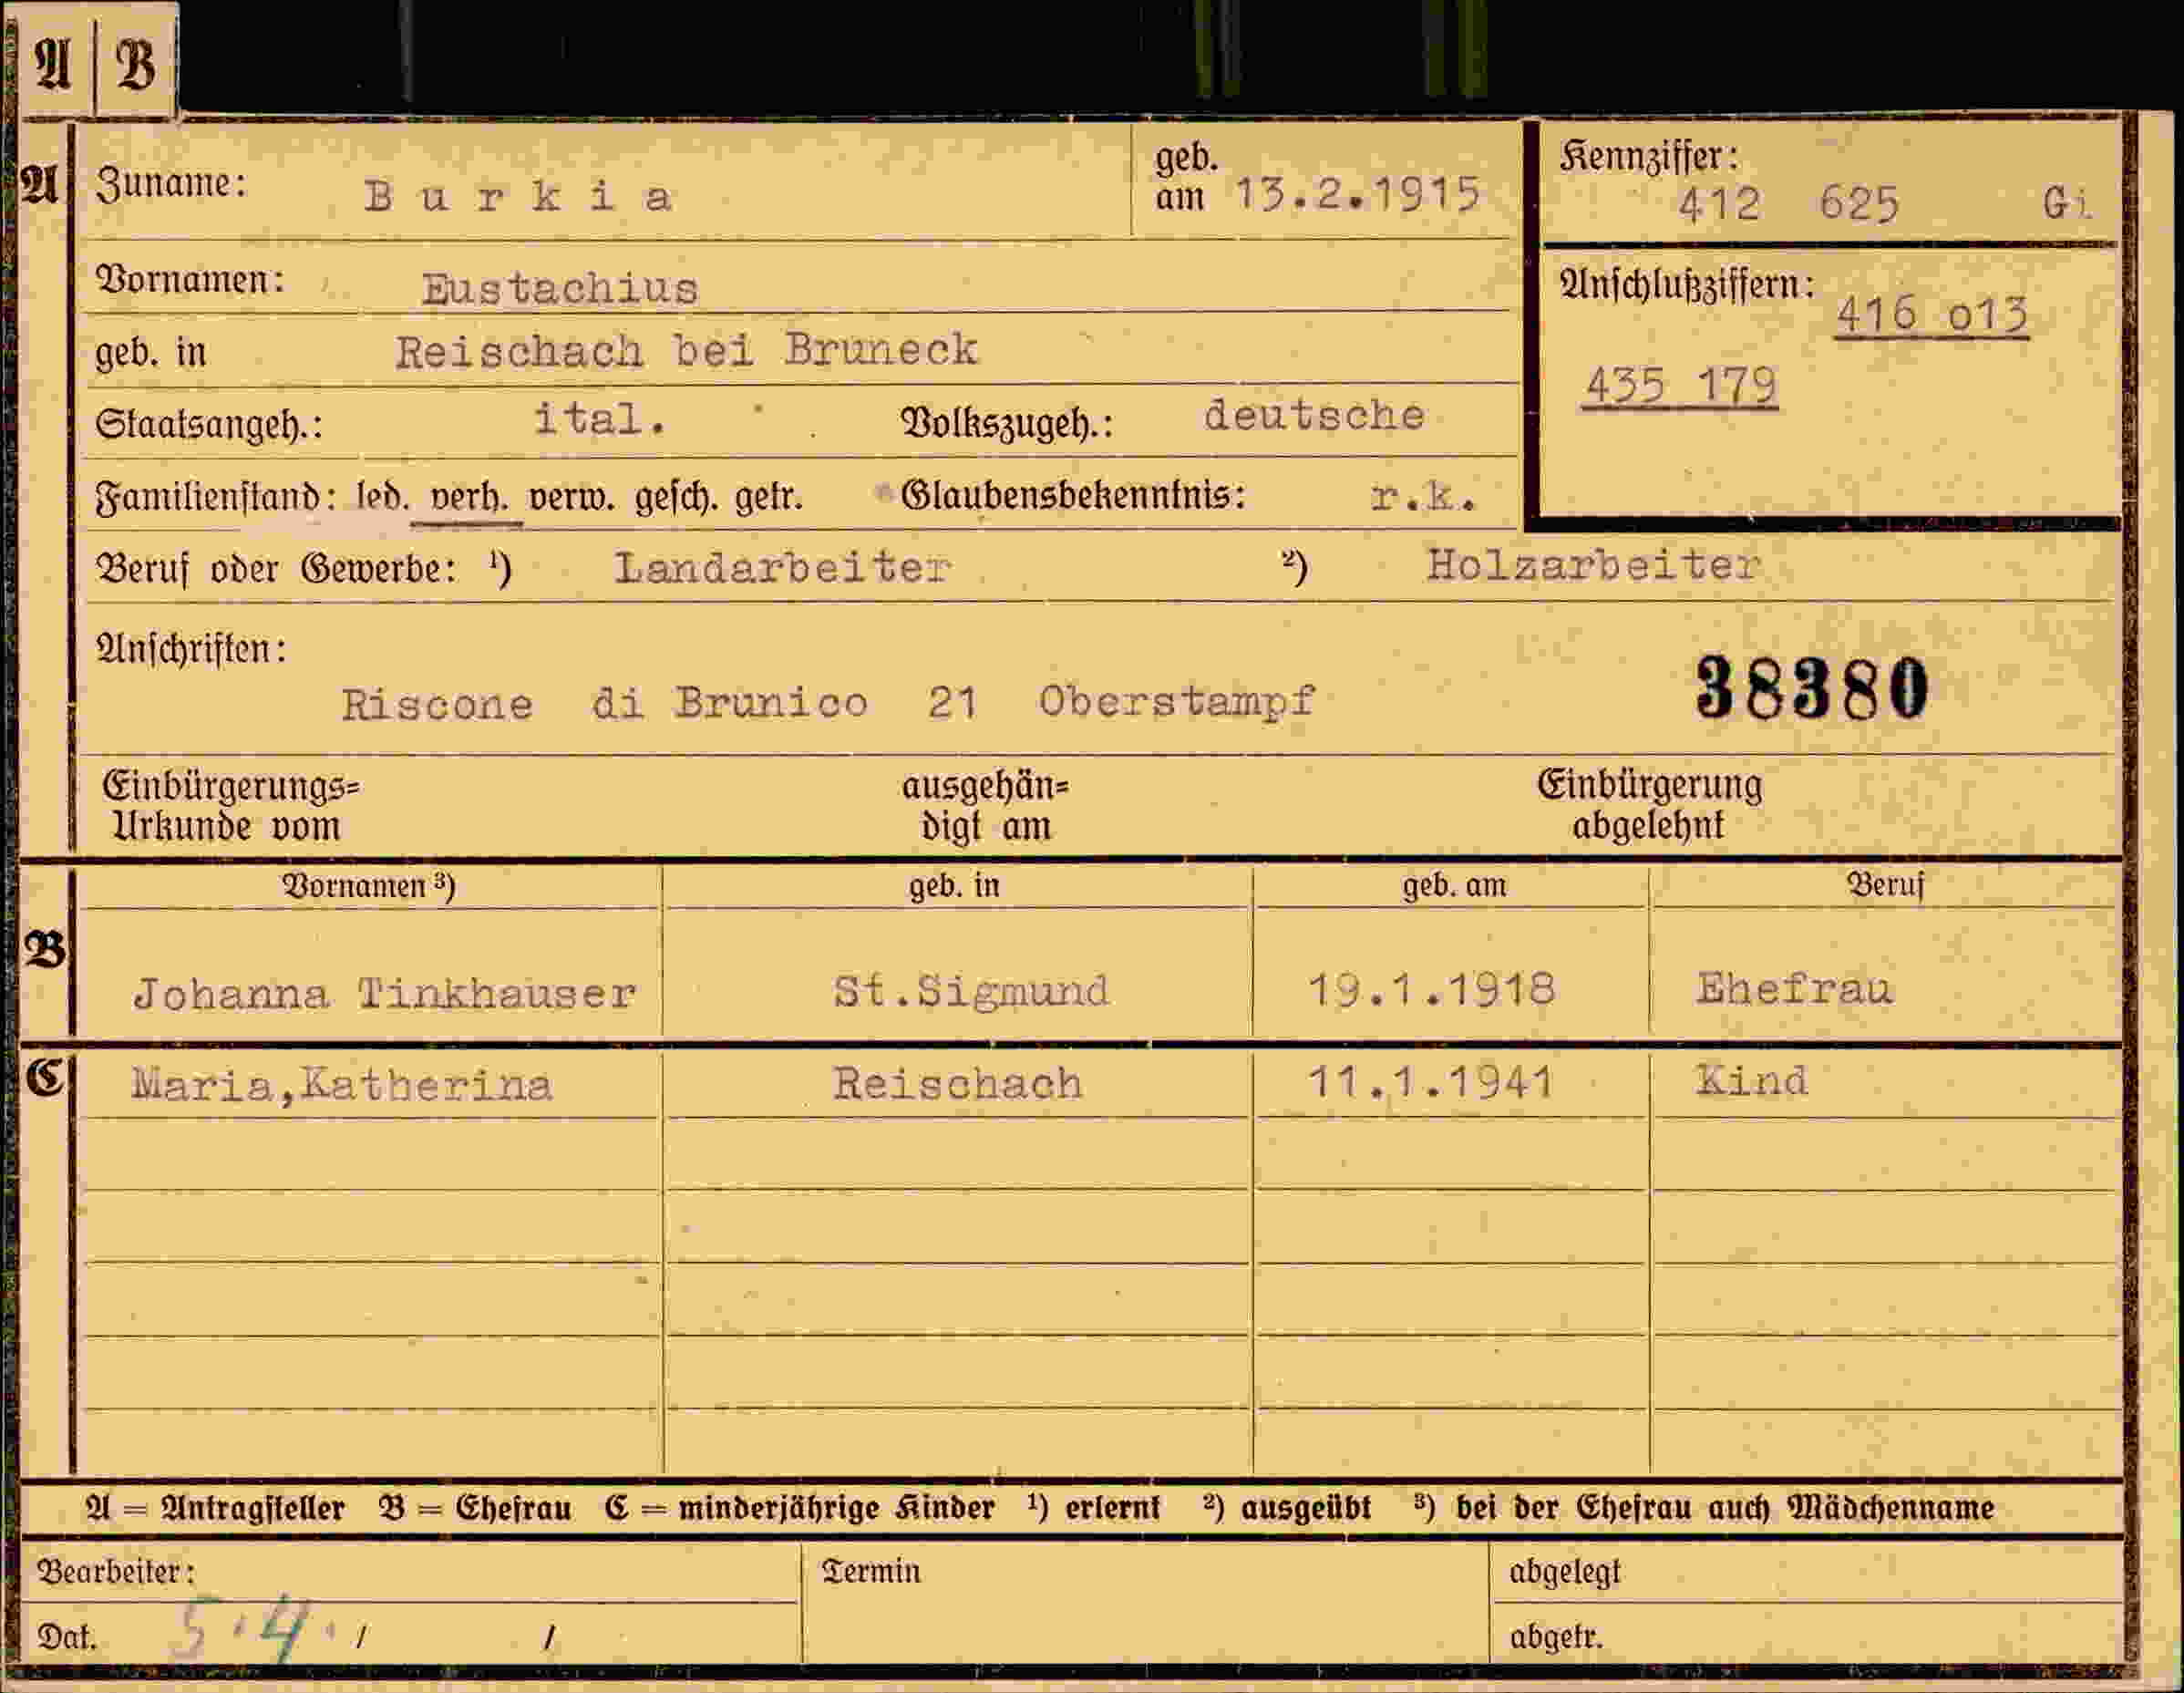 A B
A Zuname: Burkia geb. am 13.2.1915 Kennziffer: 412 625 Gi
Vornamen: Eustachius Anschlußziffern: 416 o13
geb. in Reischach bei Bruneck 435 179
Staatsangeh.: ital. Volkszugeh.: deutsche
Familienstand: led. verh. verw. gesch. getr. Glaubensbekenntnis: r.k.
Beruf oder Gewerbe: ¹) Landarbeiter ²) Holzarbeiter
Anschriften:
Riscone di Brunico 21 Oberstampf 38380
Einbürgerungs= ausgehän= Einbürgerung
Urkunde vom digt am abgelehnt
Vornamen ³) geb. in geb. am Beruf
B
Johanna Tinkhauser St.Sigmund 19.1.1918 Ehefrau
C Maria,Katherina Reischach 11.1.1941 Kind
A = Antragsteller B = Ehefrau C = minderjährige Kinder ¹) erlernt ²) ausgeübt ³) bei der Ehefrau auch Mädchenname
Bearbeiter: Termin abgelegt
Dat. 5.4. / / abgetr.